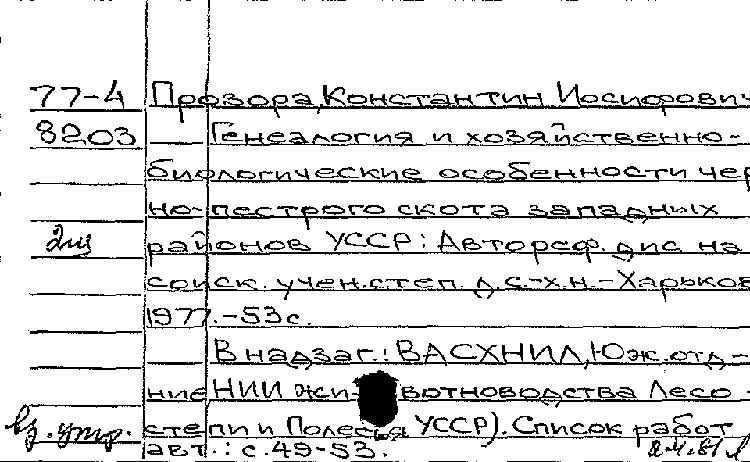 77-4 Прозора, Константин Иосифович
8203 Генеалогия и хозяйственно-
биологические особенности чер
но-пестрого скота западных
2ш районов УССР: Автореф. дис на
соиск. учен. степ. д. с.-х.н. - Харьков
1977. - 53 с.
В надзаг.: ВАСХНИЛ, Юж. отд-
ние НИИ жи- вотноводства Лесо-
вз. утр. степи и Полесья УССР). Список работ
авт.: с. 49-53.